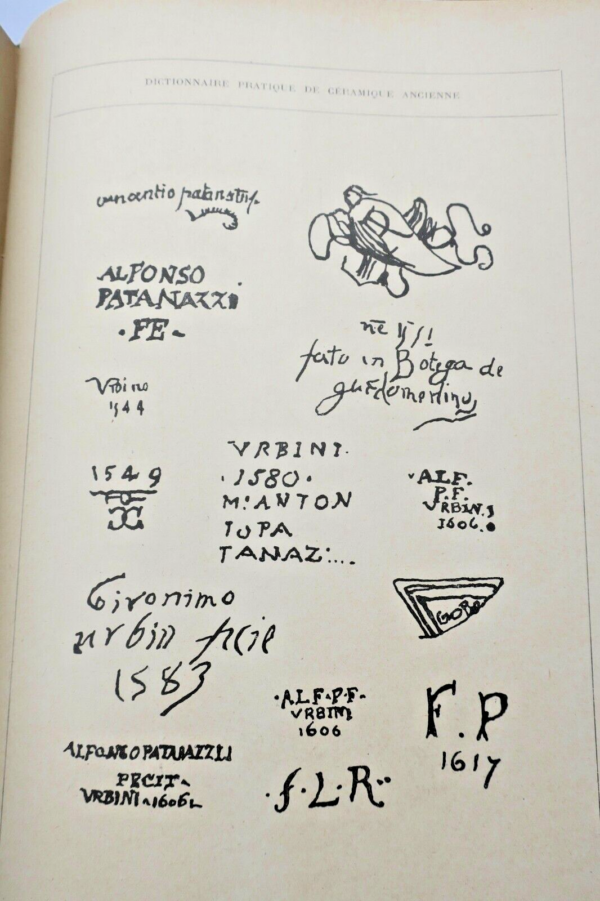 DICTIONNAIRE PRATIQUE DE CÉRAMIQUE ANCIENNE
ALFONSO
PATANAZZI
·FE~
fato in Botega de
Vrbino
1544
1549
VRBINI.
·1580·
M: ANTON
IOPA
TANAZ:....
·ALF.
P.F.
VRBIN.
1606.
Gironimo
urbin fecie
1583
·ALF·P·F·
VRBINI
1606
F.P
1617
ALFONSO PATANAZZI
FECIT~
VRBINI~1606
·f·L·R··